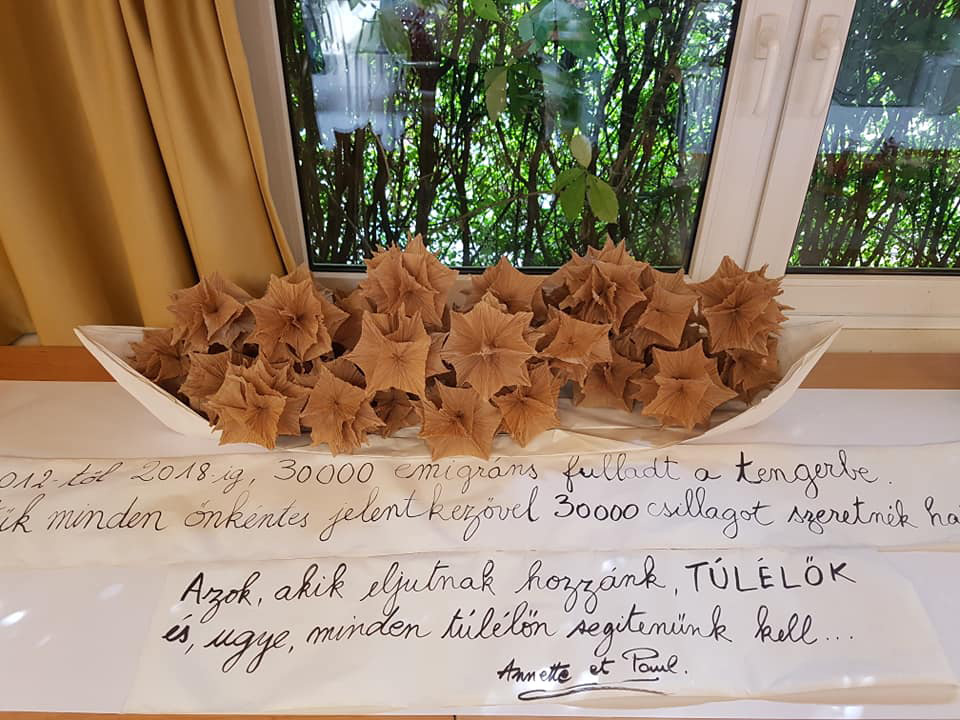 012-től 2018-ig, 30000 emigráns fulladt a tengerbe.
minden önkéntes jelentkezővel 30000 csillagot szeretnék
Azok, akik eljutnak hozzánk, TÚLÉLŐK
és, ugye, minden túlélőn segitenünk kell...
Annette et Paul.